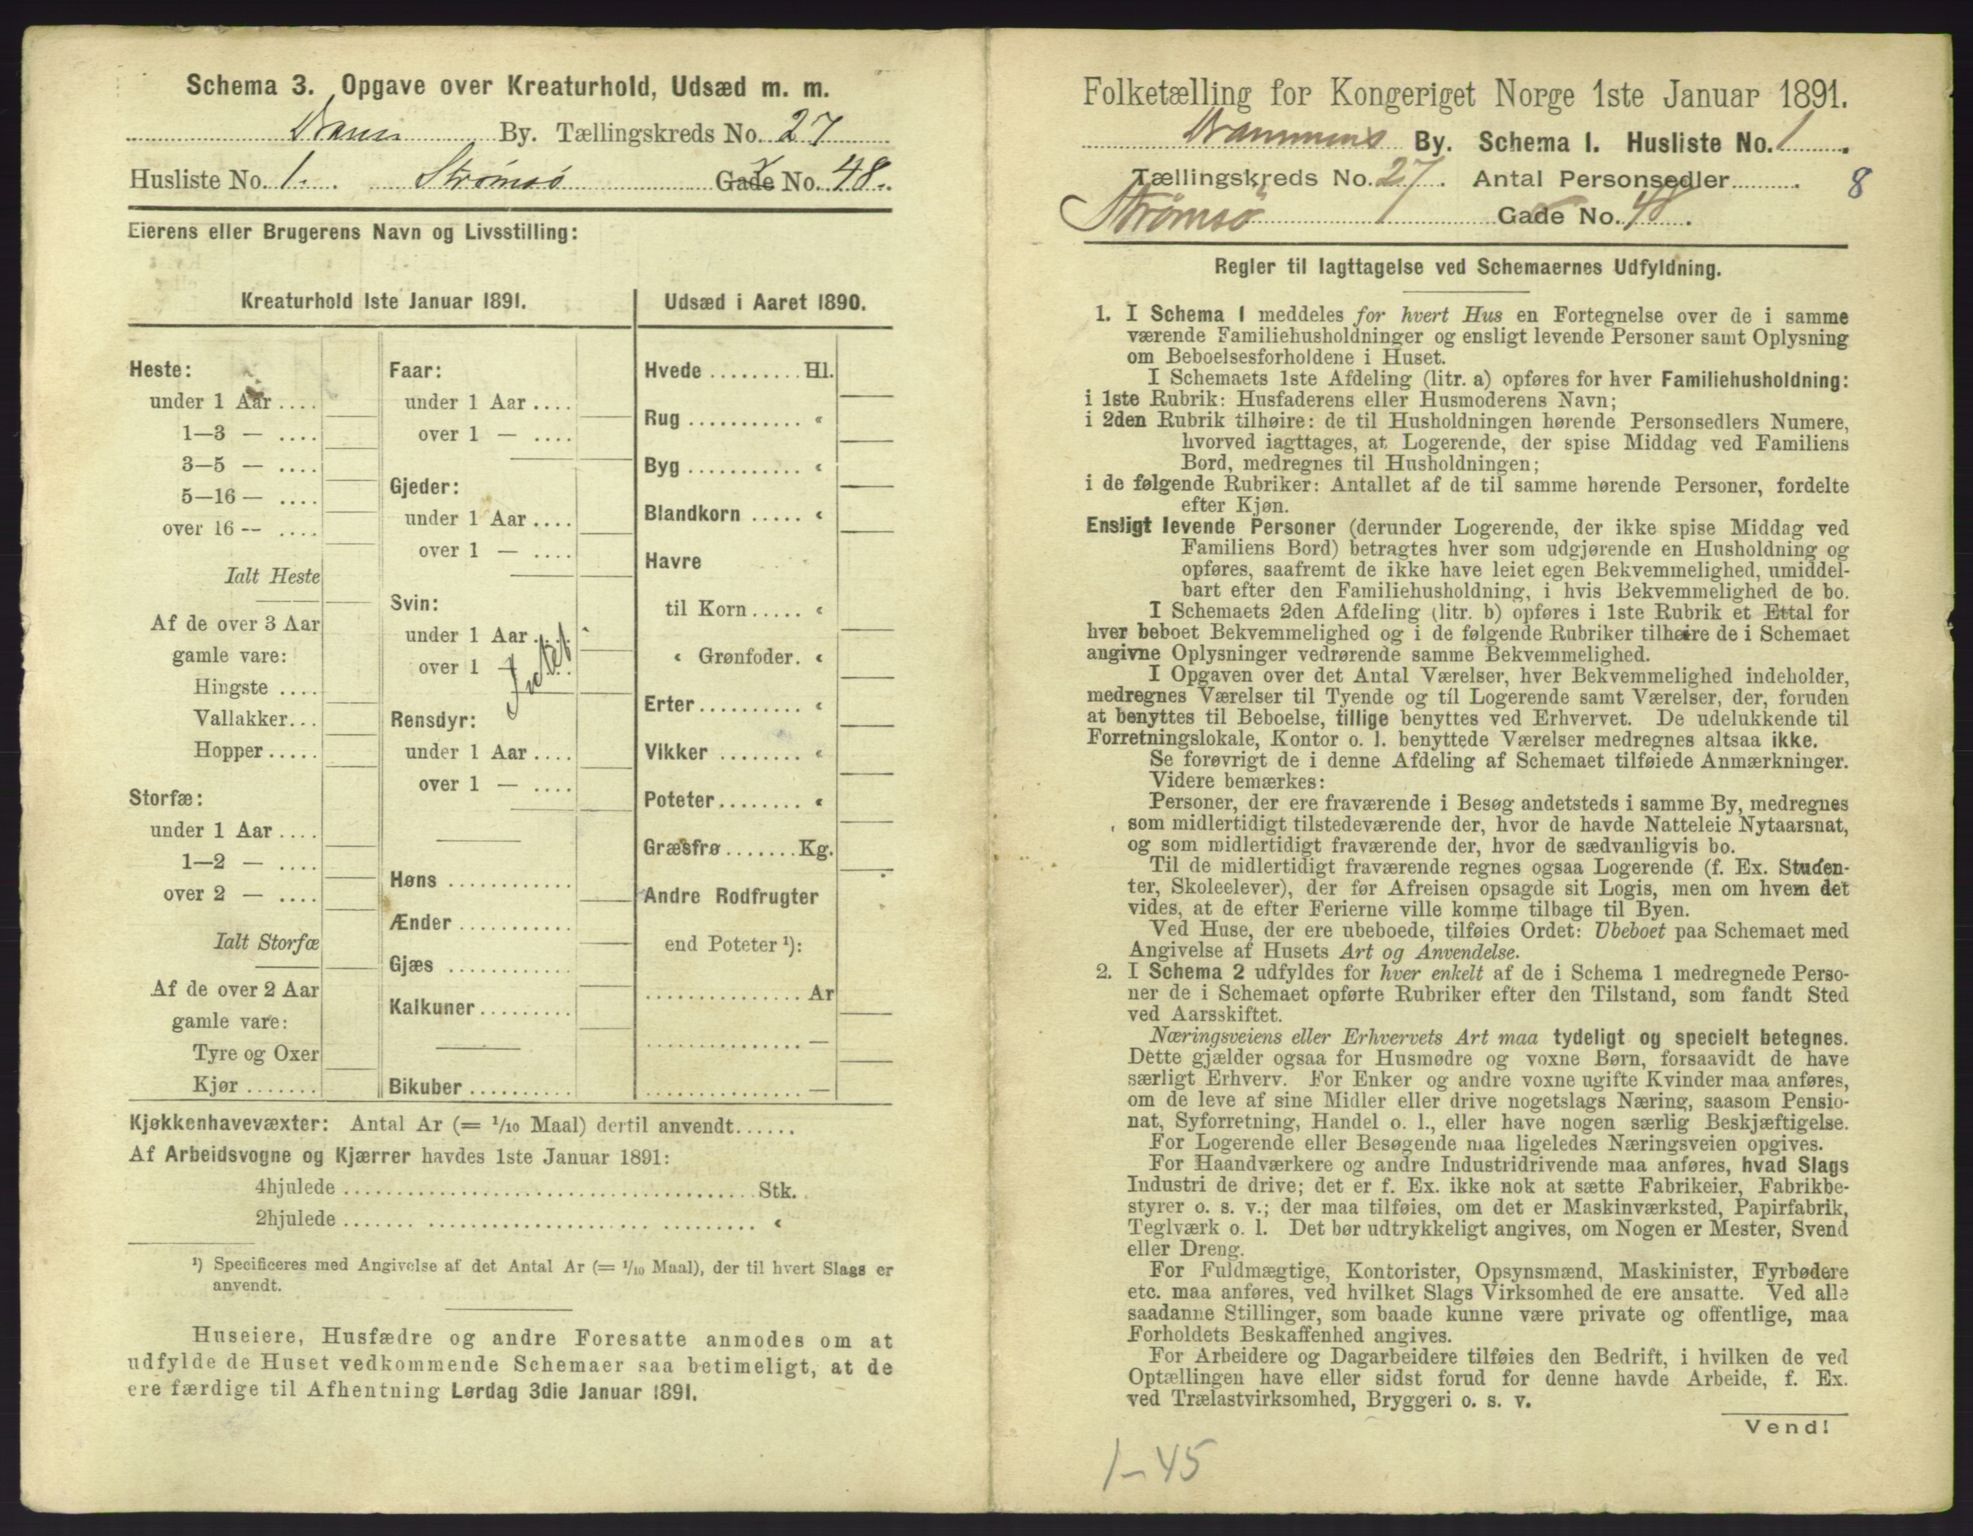 Schema 3. Opgave over Kreaturhold, Udsæd m. m.
Dramm By. Tællingskreds No. 27
Husliste No. 1. Strømsø Gade No. 48.
Eierens eller Brugerens Navn og Livsstilling:
Kreaturhold 1ste Januar 1891.
Heste:
under 1 Aar ....
1—3 — ....
3—5 — ....
5—16 — ....
over 16 — ....
Ialt Heste
Af de over 3 Aar
gamle vare:
Hingste ....
Vallakker...
Hopper .....
Storfæ:
under 1 Aar ....
1—2 — ....
over 2 — ....
Ialt Storfæ
Af de over 2 Aar
gamle vare:
Tyre og Oxer
Kjør .......
Faar:
under 1 Aar ....
over 1 — ....
Gjeder:
under 1 Aar ....
over 1 — ....
Svin:
under 1 Aar ....
over 1 — ....
Intet
Rensdyr:
under 1 Aar ....
over 1 — ....
Høns ............
Ænder ...........
Gjæs ............
Kalkuner.........
Bikuber ..........
Udsæd i Aaret 1890.
Hvede ......... Hl.
Rug ........... «
Byg ........... «
Blandkorn ..... «
Havre
til Korn ..... «
« Grønfoder. «
Erter.......... «
Vikker ........ «
Poteter........ «
Græsfrø....... Kg.
Andre Rodfrugter
end Poteter ¹):
............... Ar
............... —
............... —
Kjøkkenhavevæxter: Antal Ar (= 1/10 Maal) dertil anvendt......
Af Arbeidsvogne og Kjærrer havdes 1ste Januar 1891:
4hjulede ....................................... Stk.
2hjulede ....................................... «
¹) Specificeres med Angivelse af det Antal Ar (= 1/10 Maal), der til hvert Slags er
anvendt.
Huseiere, Husfædre og andre Foresatte anmodes om at
udfylde de Huset vedkommende Schemaer saa betimeligt, at de
ere færdige til Afhentning Lørdag 3die Januar 1891.
Folketælling for Kongeriget Norge 1ste Januar 1891.
Drammens By. Schema 1. Husliste No. 1.
Tællingskreds No. 27. Antal Personsedler ......... . 8
Strømsø Gade No. 48.
Regler til Iagttagelse ved Schemaernes Udfyldning.
1. I Schema 1 meddeles for hvert Hus en Fortegnelse over de i samme
værende Familiehusholdninger og ensligt levende Personer samt Oplysning
om Beboelsesforholdene i Huset.
I Schemaets 1ste Afdeling (litr. a) opføres for hver Familiehusholdning:
i 1ste Rubrik: Husfaderens eller Husmoderens Navn;
i 2den Rubrik tilhøire: de til Husholdningen hørende Personsedlers Numere,
hvorved iagttages, at Logerende, der spise Middag ved Familiens
Bord, medregnes til Husholdningen;
i de følgende Rubriker: Antallet af de til samme hørende Personer, fordelte
efter Kjøn.
Ensligt levende Personer (derunder Logerende, der ikke spise Middag ved
Familiens Bord) betragtes hver som udgjørende en Husholdning og
opføres, saafremt de ikke have leiet egen Bekvemmelighed, umiddel-
bart efter den Familiehusholdning, i hvis Bekvemmelighed de bo.
I Schemaets 2den Afdeling (litr. b) opføres i 1ste Rubrik et Ettal for
hver beboet Bekvemmelighed og i de følgende Rubriker tilhøire de i Schemaet
angivne Oplysninger vedrørende samme Bekvemmelighed.
I Opgaven over det Antal Værelser, hver Bekvemmelighed indeholder,
medregnes Værelser til Tyende og til Logerende samt Værelser, der, foruden
at benyttes til Beboelse, tillige benyttes ved Erhvervet. De udelukkende til
Forretningslokale, Kontor o. l. benyttede Værelser medregnes altsaa ikke.
Se forøvrigt de i denne Afdeling af Schemaet tilføiede Anmærkninger.
Videre bemærkes:
Personer, der ere fraværende i Besøg andetsteds i samme By, medregnes
som midlertidigt tilstedeværende der, hvor de havde Natteleie Nytaarsnat,
og som midlertidigt fraværende der, hvor de sædvanligvis bo.
Til de midlertidigt fraværende regnes ogsaa Logerende (f. Ex. Studen-
ter, Skoleelever), der før Afreisen opsagde sit Logis, men om hvem det
vides, at de efter Ferierne ville komme tilbage til Byen.
Ved Huse, der ere ubeboede, tilføies Ordet: Ubeboet paa Schemaet med
Angivelse af Husets Art og Anvendelse.
2. I Schema 2 udfyldes for hver enkelt af de i Schema 1 medregnede Perso-
ner de i Schemaet opførte Rubriker efter den Tilstand, som fandt Sted
ved Aarsskiftet.
Næringsveiens eller Erhvervets Art maa tydeligt og specielt betegnes.
Dette gjælder ogsaa for Husmødre og voxne Børn, forsaavidt de have
særligt Erhverv. For Enker og andre voxne ugifte Kvinder maa anføres,
om de leve af sine Midler eller drive nogetslags Næring, saasom Pensio-
nat, Syforretning, Handel o. l., eller have nogen særlig Beskjæftigelse.
For Logerende eller Besøgende maa ligeledes Næringsveien opgives.
For Haandværkere og andre Industridrivende maa anføres, hvad Slags
Industri de drive; det er f. Ex. ikke nok at sætte Fabrikeier, Fabrikbe-
styrer o. s. v.; der maa tilføies, om det er Maskinværksted, Papirfabrik,
Teglværk o. l. Det bør udtrykkeligt angives, om Nogen er Mester, Svend
eller Dreng.
For Fuldmægtige, Kontorister, Opsynsmænd, Maskinister, Fyrbødere
etc. maa anføres, ved hvilket Slags Virksomhed de ere ansatte. Ved alle
saadanne Stillinger, som baade kunne være private og offentlige, maa
Forholdets Beskaffenhed angives.
For Arbeidere og Dagarbeidere tilføies den Bedrift, i hvilken de ved
Optællingen have eller sidst forud for denne havde Arbeide, f. Ex.
ved Trælastvirksomhed, Bryggeri o. s. v.
Vend!
1–45